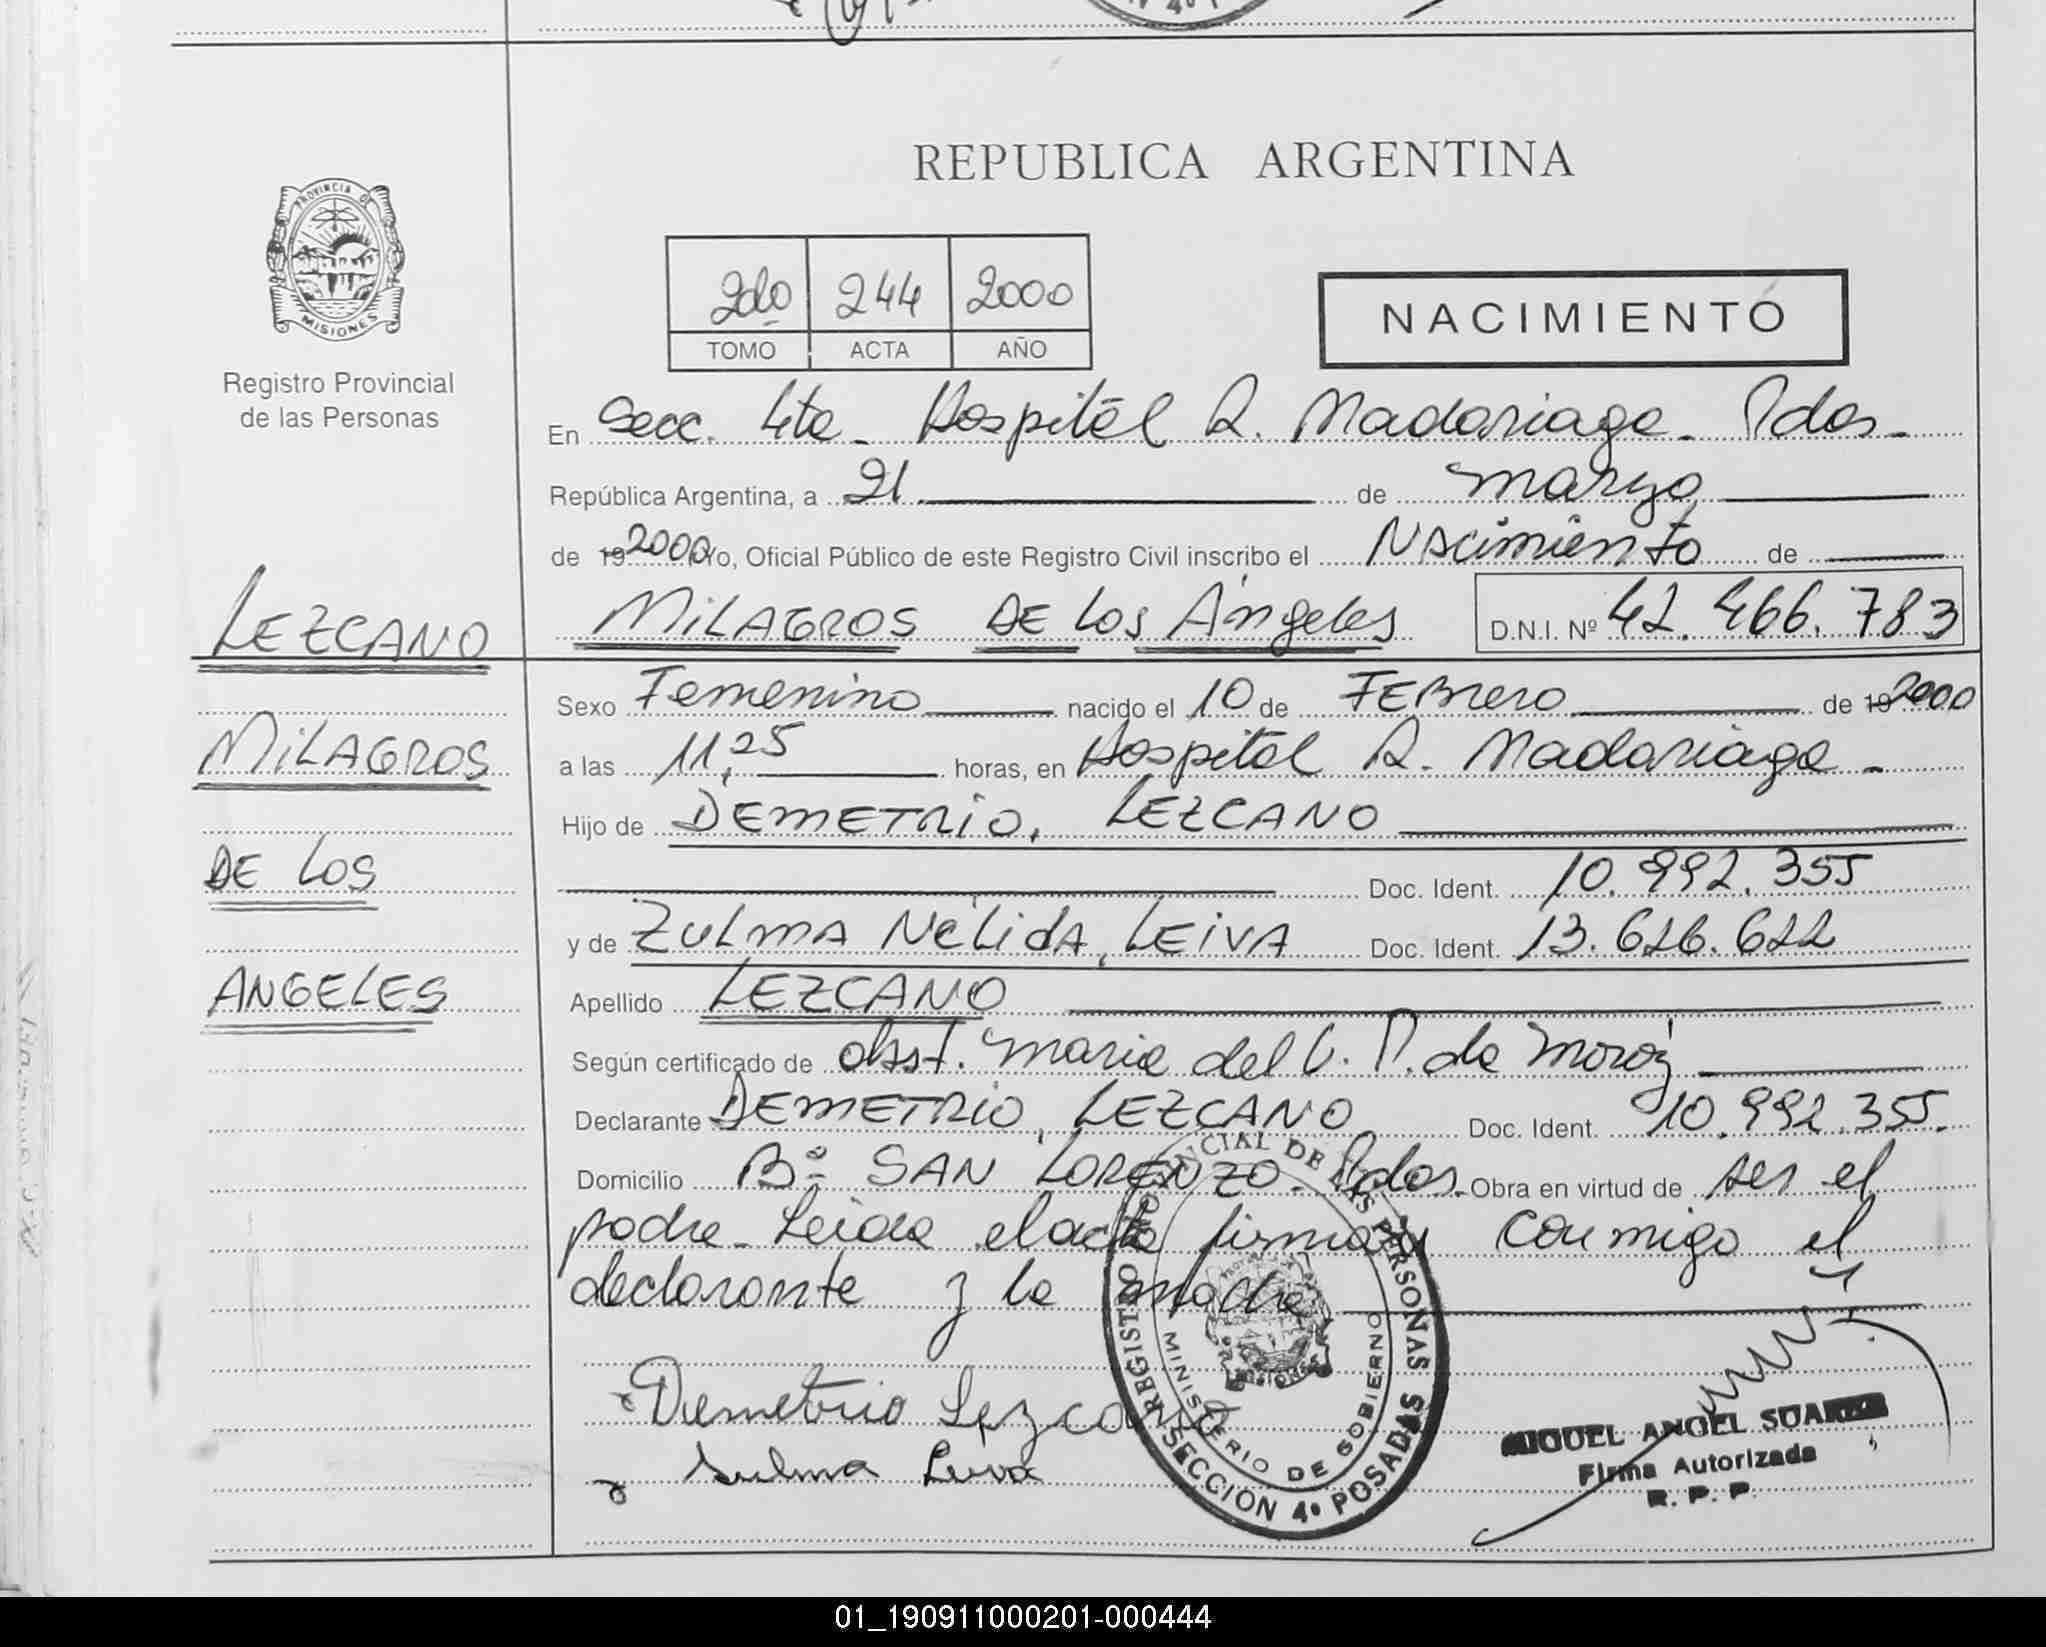 REPUBLICA ARGENTINA
PROVINCIA DE
MISIONES
Registro Provincial
de las Personas
2do 244 2000
TOMO ACTA AÑO
NACIMIENTO
En Secc. 4ta - Hospital R. Madariaga - Pdas -
República Argentina, a 21 de marzo
de 19 2000 Yo, Oficial Público de este Registro Civil inscribo el Nacimiento de
MiLAGROS DE Los Angeles D.N.I. Nº 42.466.783
LEZCANO
MiLAGROS
DE LOS
ANGELES
Sexo Femenino nacido el 10 de FEBrero de 19 2000
a las 11,25 horas, en Hospital R. Madariaga -
Hijo de DEMETRiO, LEZCANO
Doc. Ident. 10.992.355
y de ZULMA NéLidA, LEiVA Doc. Ident. 13.626.622
Apellido LEZCANO
Según certificado de obst. Maria del C. P. de Moroz
Declarante DEMETRiO, LEZCANO Doc. Ident. 10.992.355.
Domicilio Bº SAN LORENZO - Pdas. Obra en virtud de ser el
padre - Leida el acta firman conmigo el
declarante y la madre
Demetrio Lezcano
Sulma Leiva
REGISTRO PROVINCIAL DE LAS PERSONAS
MINISTERIO DE GOBIERNO
SECCION 4º POSADAS
MIGUEL ANGEL SUAREZ
Firma Autorizada
R. P. P.
01_190911000201-000444